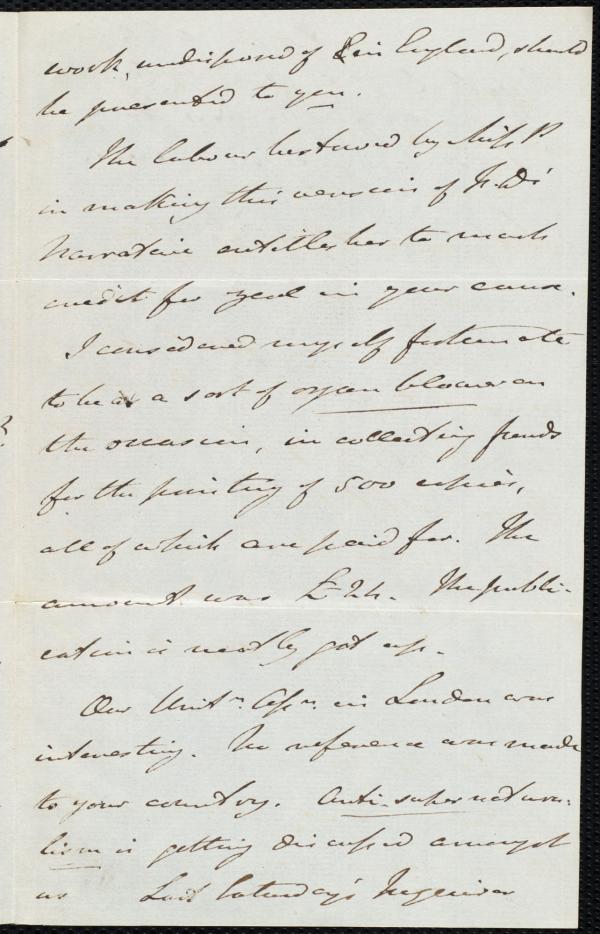 work, undisposed of in England, should
be presented to you.
The labour bestowed by Miss P
in making this version of F. D's
Narrative entitles her to much
credit for zeal in your cause.
I considered myself fortunate
to be as a sort of organ blower on
the occasion, in collecting funds
for the printing of 500 copies,
all of which are paid for. The
amount was £24. The publi-
cation is neatly got up.
Our Unitn. Assn. in London was
interesting. No reference was made
to your country. Anti-supernatura-
lism is getting discussed amongst
us Last Saturday's Inquirer